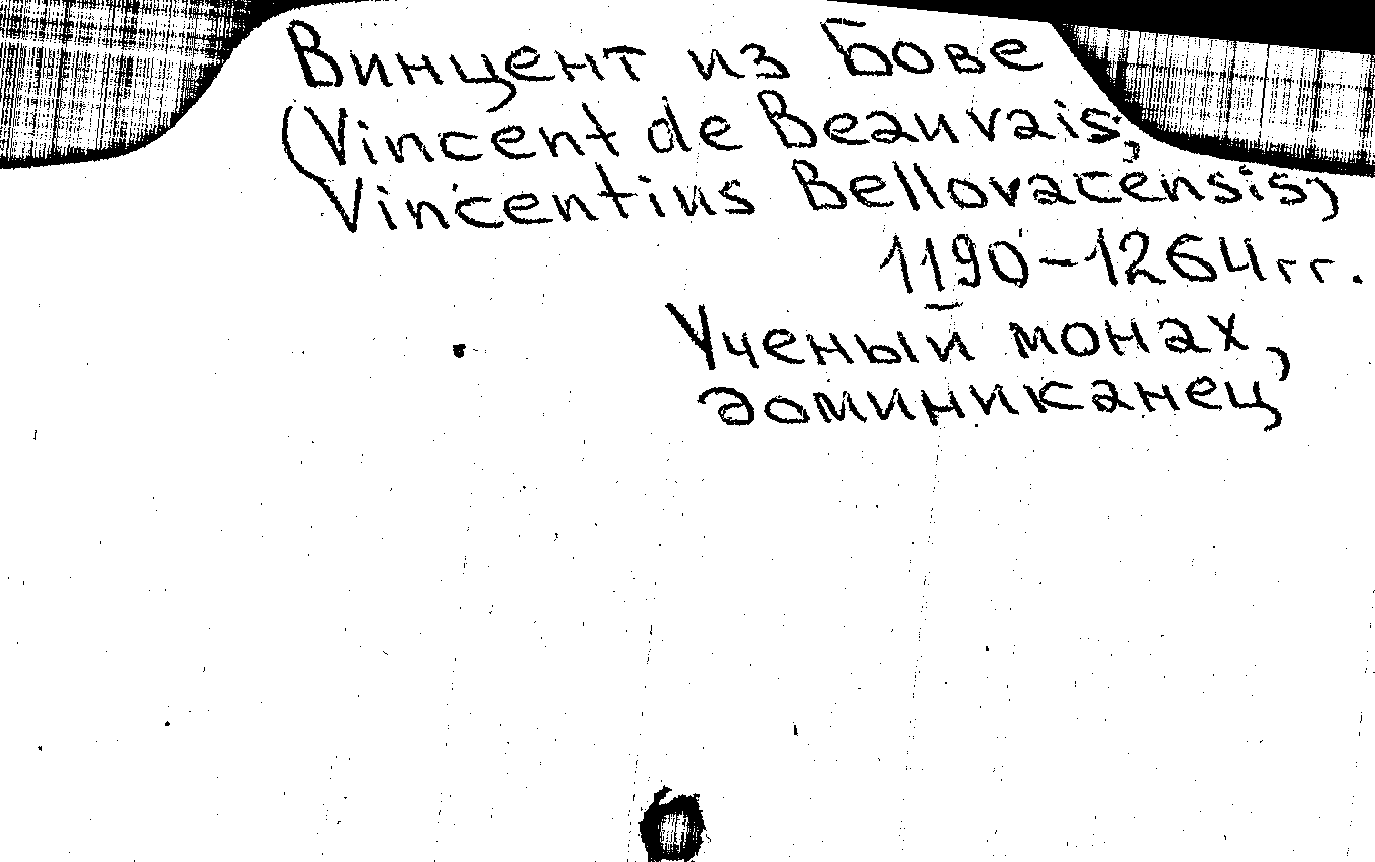 Винцент из Бове
(Vincent de Beauvais;
Vincentius Bellovacensis)
1190-1264гг.
Ученый монах,
доминиканец